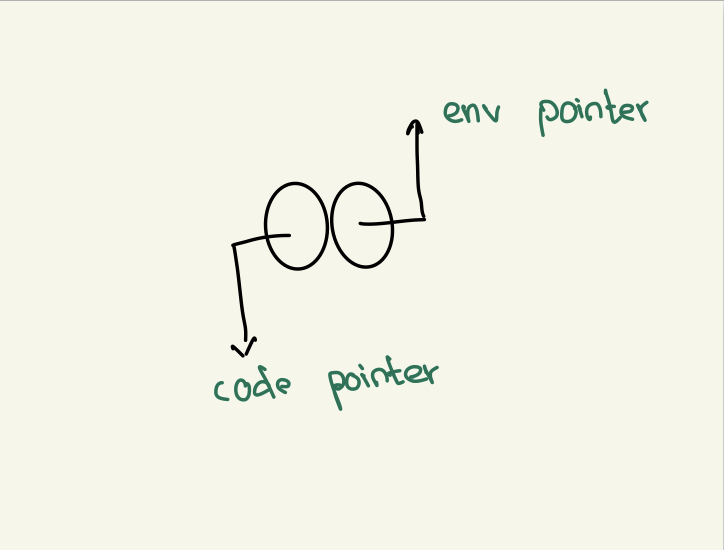 env pointer
code pointer